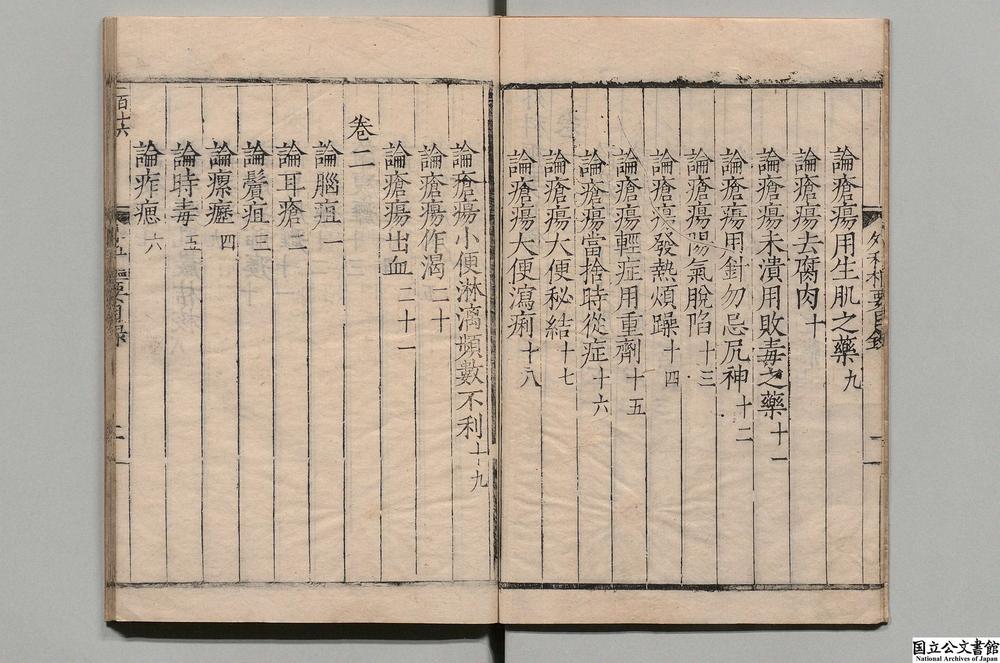 論瘡瘍用生肌之藥九
論瘡瘍去腐肉十
論瘡瘍未潰用敗毒之藥十一
論瘡瘍用針勿忌尻神十二
論瘡瘍陽氣脫陷十三
論瘡瘍發熱煩躁十四
論瘡瘍輕症用重劑十五
論瘡瘍當捨時從症十六
論瘡瘍大便秘結十七
論瘡瘍大便瀉痢十八
論瘡瘍小便淋漓頻數不利十九
論瘡瘍作渴二十
論瘡瘍出血二十一
卷二
論腦疽一
論耳瘡二
論鬢疽三
論瘰癧四
論時毒五
論痄腮六
百十六
国立公文書館
National Archives of Japan